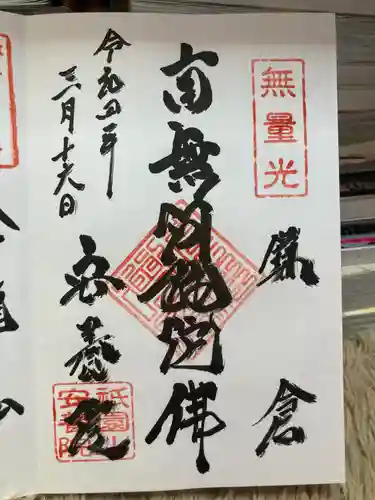 無量光
鎌倉
南無阿弥陀佛
令和四年
三月十六日
安養院
祇園山
安養院